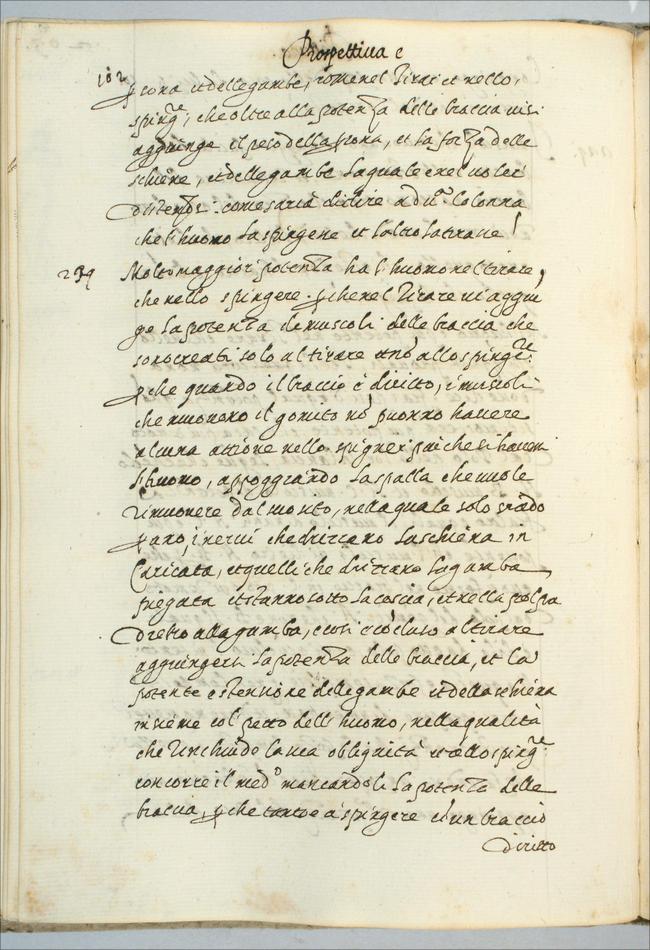 Prospettiua e
102
sona et delle gambe, come nel Tirar et nello,
sping.re, che oltre alla potenza delle braccia ui si
aggiunge il peso della psona, et la forza delle
schiene, et delle gambe la quale e nel uoler
distendsi: come saria di dire ad u.a Colonna
che l'huomo la spingene et l'altro la tirane!
239 Molto maggior potenza ha l'huomo nel tirare,
che nello spingere. pche nel Tirare ui aggiu
ge la potenza de muscoli delle braccia che
sono creati solo al tirare et nõ allo sping.re:
pche quando il braccio è diritto, i muscoli
che muouono il gomito nõ puonno hauere
alcuna attione nello spigner piu che si hauessi
l'huomo, appoggiando la spalla che uuole
rimouere dal mo sito, nella quale solo s'ado
prano, i nerui che drizzano la schiena in
Caricata, et quelli che drizzano la gamba
piegata et stanno sotto la coscia, et nella polpa
Dietro alla gamba, e cosi è cõcluso al tirare
aggiungersi la potenza delle braccia, et la
potente estensione delle gambe et della schiena
insieme col petto dell'huomo, nella qualità
che l'inchiude la sua obliquità et allo sping.re
concorre il med.o mancandoli la potenza delle
braccia, pche tanto è spingere cõ un braccio
diritto